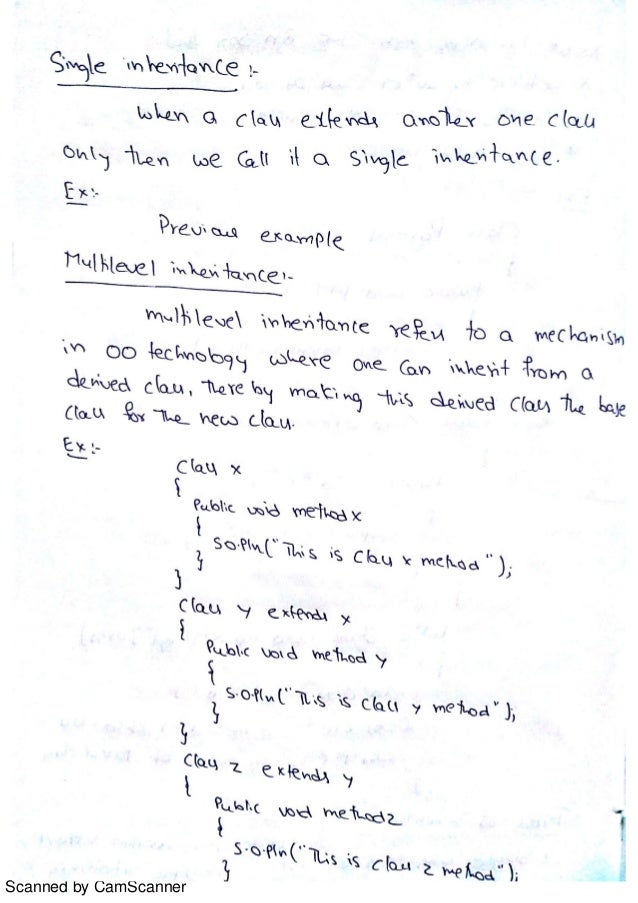 Single inheritance :-
When a class extends another one class
only then we call it a single inheritance.
Ex:-
Previous example
Multilevel inheritance:-
multilevel inheritance refers to a mechanism
in OO technology where one can inherit from a
derived class, there by making this derived class the base
class for the new class.
Ex:-
Class x
{
Public void method x
{
S.O.Pln("This is Class x method");
}
}
Class y extends x
{
Public void method y
{
S.O.Pln("This is Class y method");
}
}
Class z extends y
{
Public void methodz
{
S.O.Pln("This is class z method");
}
Scanned by CamScanner